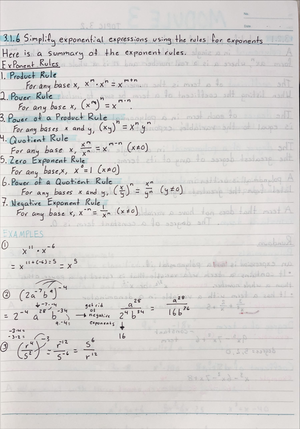 3.1.6 Simplify exponential expressions using the rules for exponents
Here is a summary of the exponent rules.
Exponent Rules
1. Product Rule
For any base x, xᵐ · xⁿ = xᵐ⁺ⁿ
2. Power Rule
For any base x, (xᵐ)ⁿ = xᵐ·ⁿ
3. Power of a Product Rule
For any bases x and y, (xy)ⁿ = xⁿyⁿ
4. Quotient Rule
For any base x, xᵐ/xⁿ = xᵐ⁻ⁿ (x≠0)
5. Zero Exponent Rule
For any base, x, x⁰ = 1 (x≠0)
6. Power of a Quotient Rule
For any bases x and y, (x/y)ⁿ = xⁿ/yⁿ (y≠0)
7. Negative Exponent Rule
For any base x, x⁻ⁿ = 1/xⁿ (x≠0)
EXAMPLES
① x¹¹ · x⁻⁶
= x¹¹⁺⁽⁻⁶⁾ = x⁵
② (2a⁻⁷b⁹)⁻⁴
= 2⁻⁴ a²⁸ b⁻³⁶ got rid of negative exponents a²⁸/2⁴b³⁶ = a²⁸/16b³⁶
16
③ (r⁴/s²)⁻³ = r⁻¹²/s⁻⁶ = s⁶/r¹²